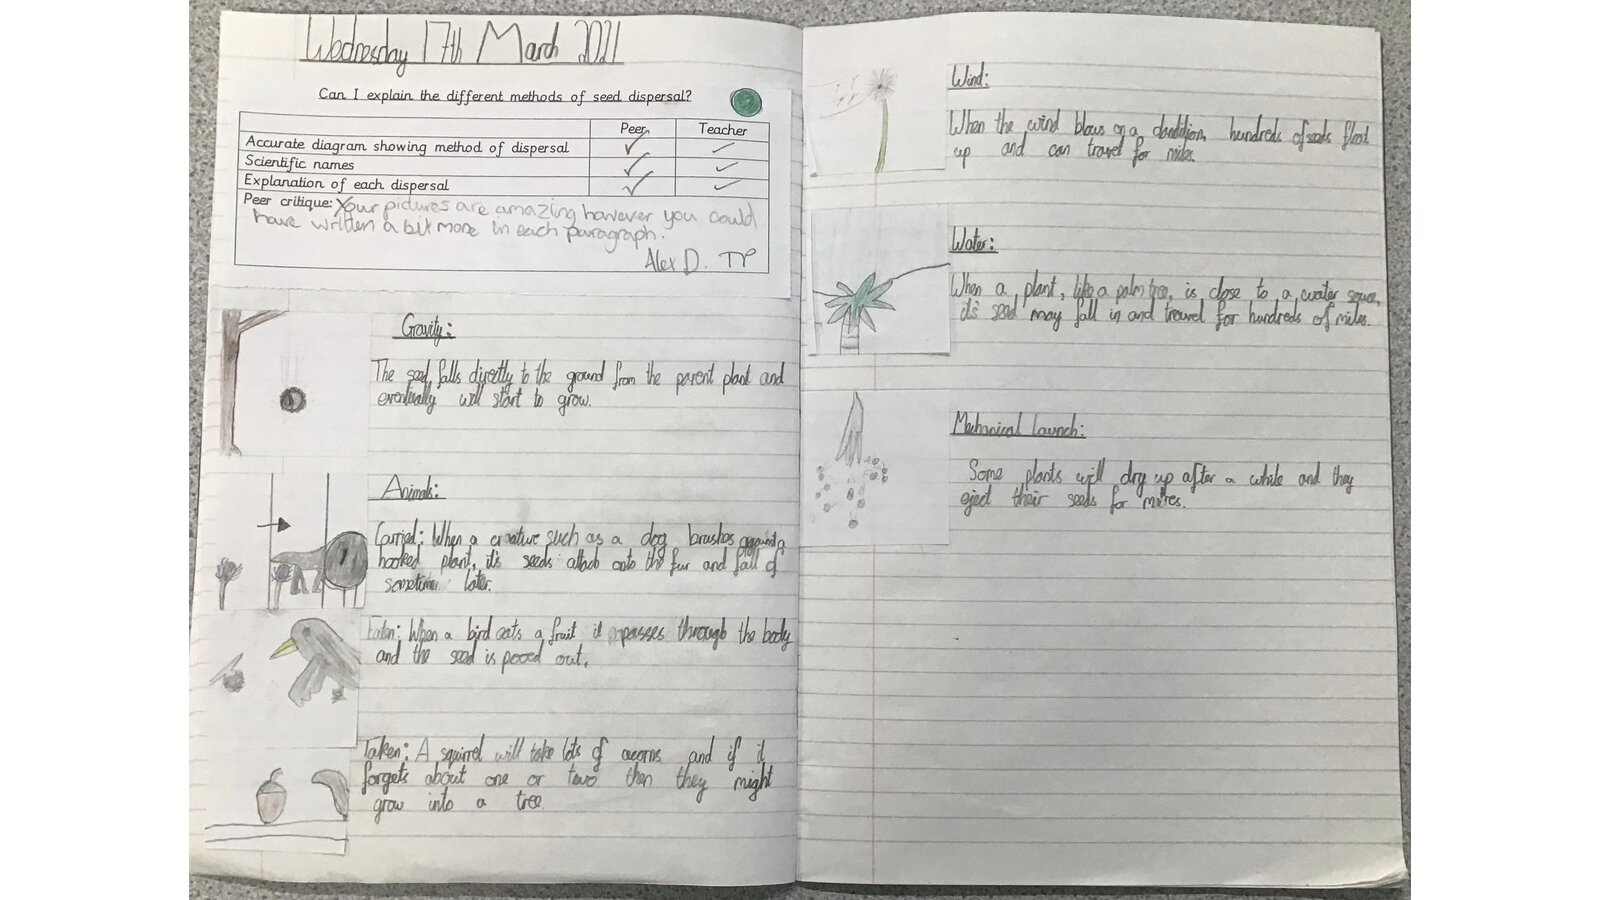 Wednesday 17th March 2021
Can I explain the different methods of seed dispersal?
Peer Teacher
Accurate diagram showing method of dispersal
Scientific names
Explanation of each dispersal
Peer critique: Your pictures are amazing however you could
have written a bit more in each paragraph.
Alex D. TP
Gravity:
The seed falls directly to the ground from the parent plant and
eventually will start to grow.
Animals:
Carried: When a creature such as a dog brushes against a
hooked plant, it's seeds attach onto the fur and fall of
sometime later.
Eaten: When a bird eats a fruit it passes through the body
and the seed is pooed out.
Taken: A squirrel will take lots of acorns and if it
forgets about one or two then they might
grow into a tree.
Wind:
When the wind blows on a dandilion, hundreds of seeds float
up and can travel for miles.
Water:
When a plant, like a palm tree, is close to a water source,
it's seed may fall in and travel for hundreds of miles.
Mechanical launch:
Some plants will dry up after a while and they
eject their seeds for metres.